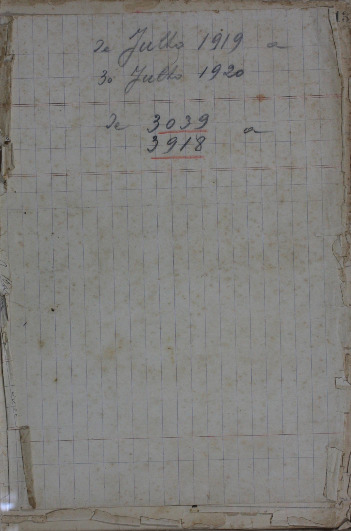 13
De Julho 1919 a
30 Julho 1920
De 3039 a
3918